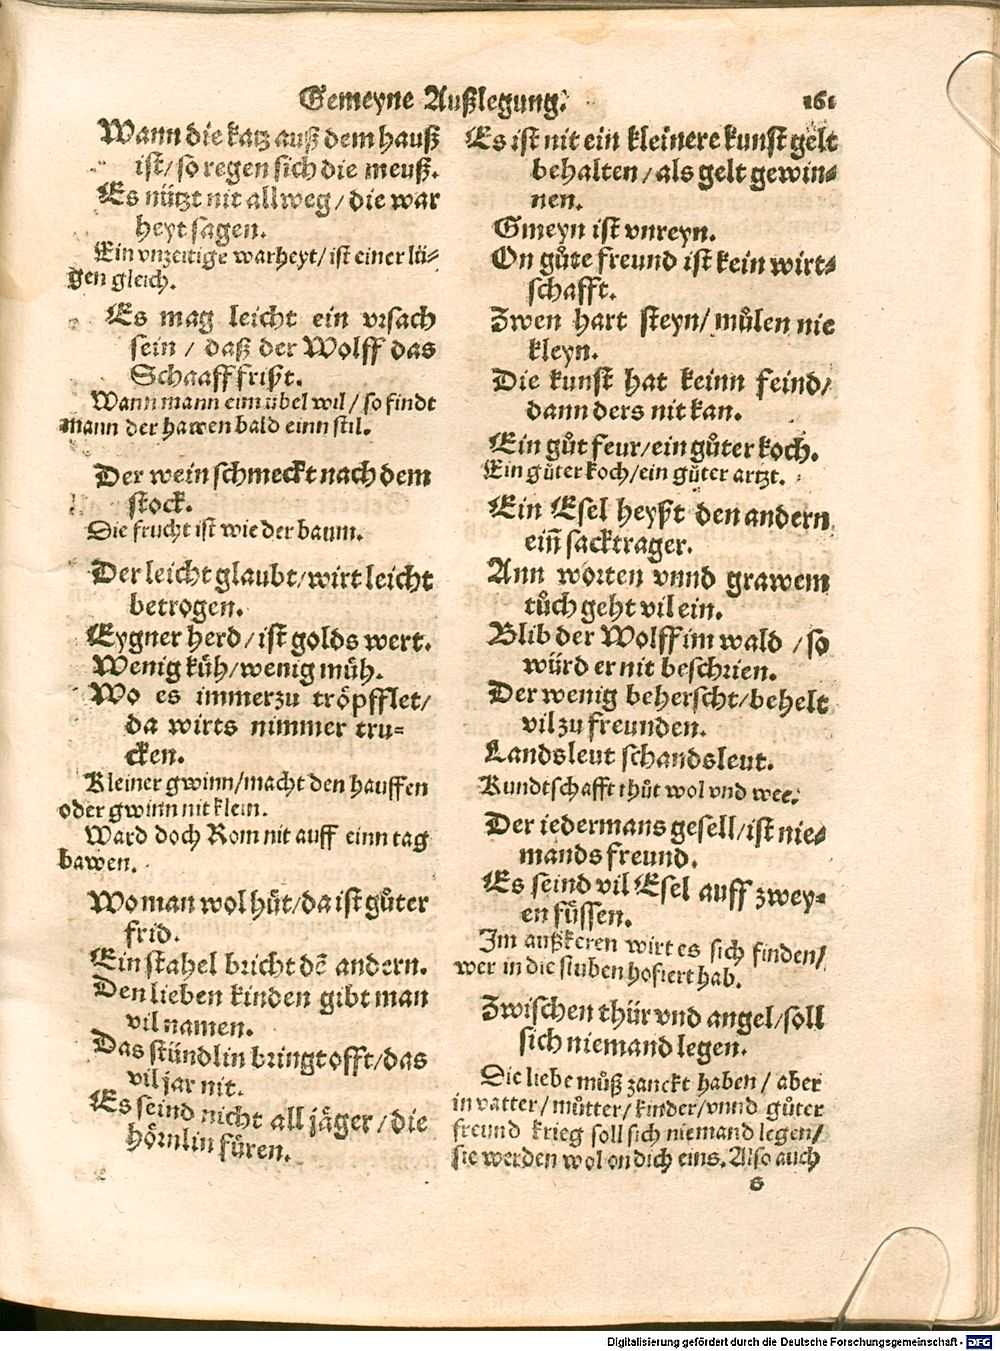 Gemeyne Außlegung. 161
Wann die katz auß dem hauß
ist/ so regen sich die meuß.
Es nützt nit allweg/ die war
heyt sagen.
Ein vnzeitige warheyt/ ist einer lü-
gen gleich.
Es mag leicht ein vrsach
sein / daß der Wolff das
Schaaff frißt.
Wann mann eim übel wil/ so findt
mann der hawen bald einn stil.
Der wein schmeckt nach dem
stock.
Die frucht ist wie der baum.
Der leicht glaubt/ wirt leicht
betrogen.
Eygner herd/ ist golds wert.
Wenig küh/ wenig müh.
Wo es immerzu tröpfflet/
da wirts nimmer tru-
cken.
Kleiner gwinn/ macht den hauffen
oder gwinn nit klein.
Ward doch Rom nit auff einn tag
bawen.
Wo man wol hüt/ da ist gůter
frid.
Ein stahel bricht dē andern.
Den lieben kinden gibt man
vil namen.
Das stündlin bringt offt/ das
vil jar nit.
Es seind nicht all jäger / die
hörnlin füren.
Es ist nit ein kleinere kunst gelt
behalten / als gelt gewin-
nen.
Gmeyn ist vnreyn.
On gůte freund ist kein wirt-
schafft.
Zwen hart steyn/ můlen nie
kleyn.
Die kunst hat keinn feind/
dann ders nit kan.
Ein gůt feur/ ein gůter koch.
Ein gůter koch/ ein gůter artzt.
Ein Esel heyßt den andern
eiñ sacktrager.
Ann worten vnnd grawem
tůch geht vil ein.
Blib der Wolff im wald / so
würd er nit beschrien.
Der wenig beherscht/ behelt
vil zu freunden.
Landsleut schandsleut.
Kundtschafft thůt wol vnd wee.
Der iedermans gesell/ ist nie-
mands freund.
Es seind vil Esel auff zwey-
en füssen.
Im außkeren wirt es sich finden/
wer in die stuben hofiert hab.
Zwischen thür vnd angel/ soll
sich niemand legen.
Die liebe můß zanckt haben / aber
in vatter/ můtter/ kinder/ vnnd gůter
freund krieg soll sich niemand legen/
sie werden wol on dich eins. Also auch
S
Digitalisierung gefördert durch die Deutsche Forschungsgemeinschaft - DFG